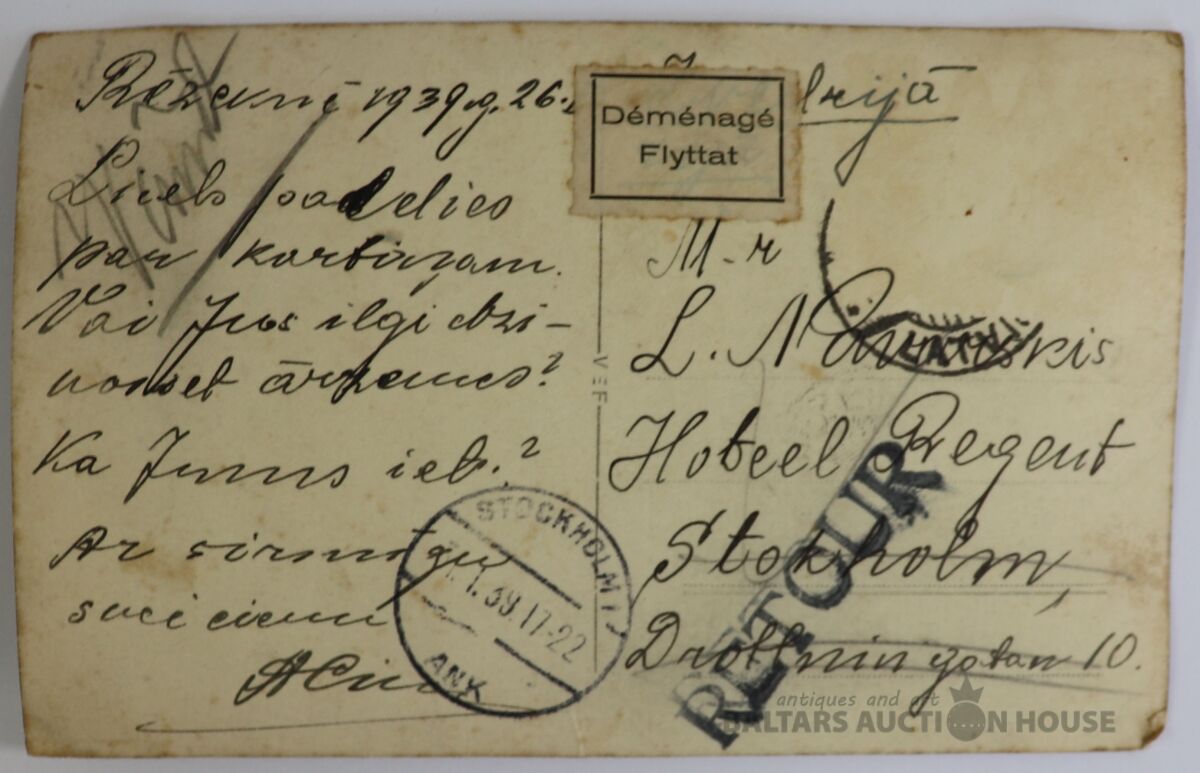 Rēzeknē 1939.g. 26.
Liels paldies
par kartiņam.
Vai Jus ilgi dzi-
vosset ārzemes?
Ka Jums iet.?
Ar sirsnīgu
sveicienu
Déménagé
Flyttat
M-r
L.
Hoteel Regent
Stokholm,
Drottningatan 10.
VEF
STOCKHOLM 1
1.39.17-22
ANK
LATV
RETOUR
antiques and art
BALTARS AUCTION HOUSE